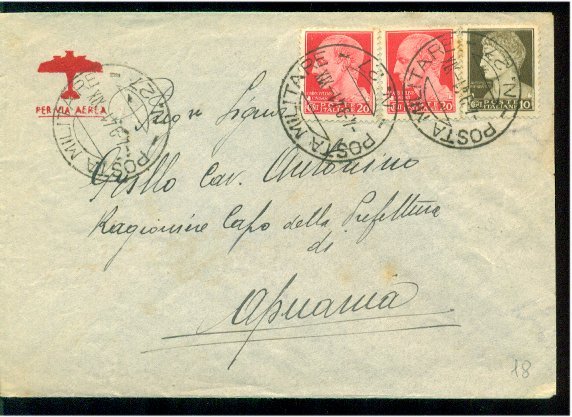 PER VIA AEREA
POSTA MILITARE
POSTA MILITARE
POSTA MILITARE
20
20
POSTE ITALIANE
10
Signor
Cav. Antonino
Ragioniere Capo della Prefettura
di
Apuania
18